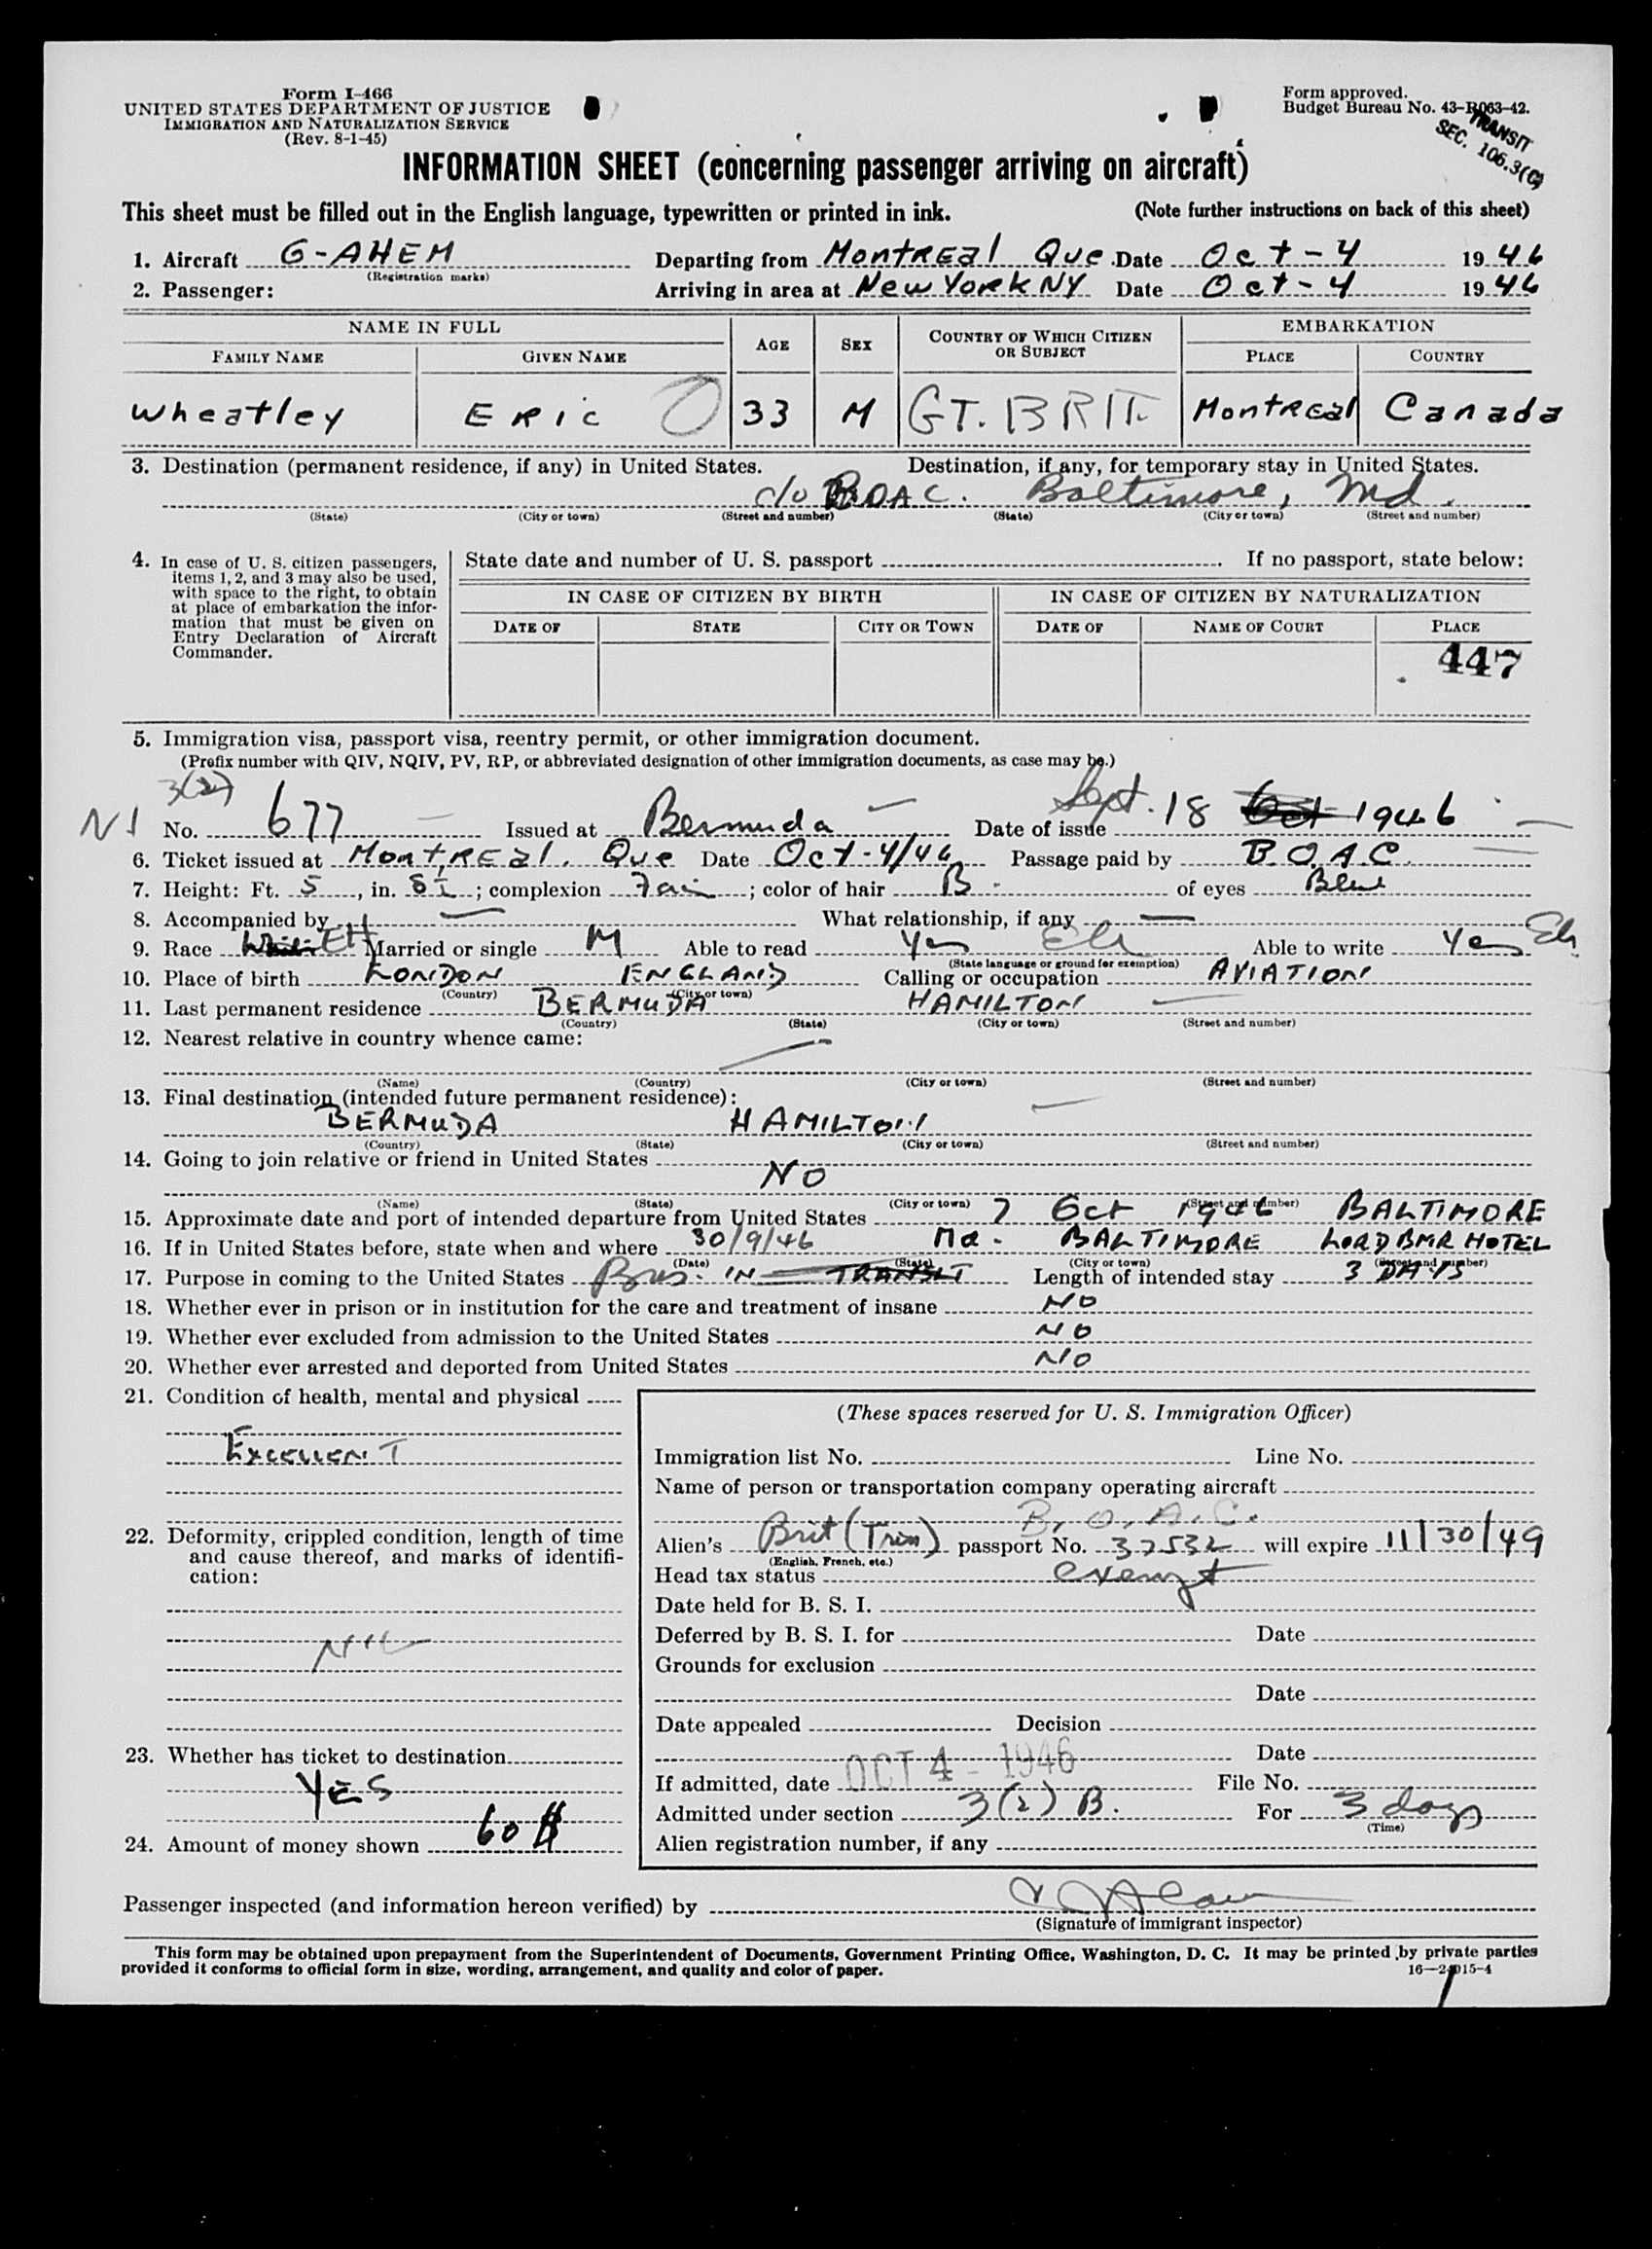 Form I-466
UNITED STATES DEPARTMENT OF JUSTICE
IMMIGRATION AND NATURALIZATION SERVICE
(Rev. 8-1-45)
Form approved.
Budget Bureau No. 43-R063-42.
TRANSIT
SEC. 106.3(C)
INFORMATION SHEET (concerning passenger arriving on aircraft)
This sheet must be filled out in the English language, typewritten or printed in ink. (Note further instructions on back of this sheet)
1. Aircraft G-AHEM Departing from Montreal Que. Date Oct-4 1946
(Registration marks)
2. Passenger: Arriving in area at New York NY Date Oct-4 1946
NAME IN FULL AGE SEX COUNTRY OF WHICH CITIZEN OR SUBJECT EMBARKATION
FAMILY NAME GIVEN NAME PLACE COUNTRY
Wheatley Eric 33 M GT. BRIT. Montreal Canada
3. Destination (permanent residence, if any) in United States. Destination, if any, for temporary stay in United States.
c/o BOAC. Baltimore, Md.
(State) (City or town) (Street and number) (State) (City or town) (Street and number)
4. In case of U. S. citizen passengers, items 1, 2, and 3 may also be used, with space to the right, to obtain at place of embarkation the information that must be given on Entry Declaration of Aircraft Commander.
State date and number of U. S. passport . If no passport, state below:
IN CASE OF CITIZEN BY BIRTH IN CASE OF CITIZEN BY NATURALIZATION
DATE OF STATE CITY OR TOWN DATE OF NAME OF COURT PLACE
447
5. Immigration visa, passport visa, reentry permit, or other immigration document.
(Prefix number with QIV, NQIV, PV, RP, or abbreviated designation of other immigration documents, as case may be.)
3(2)
NI No. 677 Issued at Bermuda Date of issue Sept. 18 Oct 1946
6. Ticket issued at Montreal. Que Date Oct-4/46 Passage paid by B.O.A.C.
7. Height: Ft. 5, in. 8½; complexion Fair; color of hair B- of eyes Blue
8. Accompanied by — What relationship, if any —
9. Race White EH Married or single M Able to read Yes Eh Able to write Yes Eh
(State language or ground for exemption)
10. Place of birth LONDON ENGLAND Calling or occupation AVIATION
(Country) (City or town)
11. Last permanent residence BERMUDA HAMILTON —
(Country) (State) (City or town) (Street and number)
12. Nearest relative in country whence came:
(Name) (Country) (City or town) (Street and number)
13. Final destination (intended future permanent residence):
BERMUDA HAMILTON —
(Country) (State) (City or town) (Street and number)
14. Going to join relative or friend in United States
NO
(Name) (State) (City or town) (Street and number)
15. Approximate date and port of intended departure from United States 7 Oct 1946 BALTIMORE
16. If in United States before, state when and where 30/9/46 Md. BALTIMORE LORD BMR HOTEL
(Date) (State) (City or town) (Street and number)
17. Purpose in coming to the United States Bus. IN TRANSIT Length of intended stay 3 DAYS
18. Whether ever in prison or in institution for the care and treatment of insane NO
19. Whether ever excluded from admission to the United States NO
20. Whether ever arrested and deported from United States NO
21. Condition of health, mental and physical
EXCELLENT
22. Deformity, crippled condition, length of time and cause thereof, and marks of identification:
NIL
23. Whether has ticket to destination
YES
24. Amount of money shown 60 $
(These spaces reserved for U. S. Immigration Officer)
Immigration list No. Line No.
Name of person or transportation company operating aircraft
B.O.A.C.
Alien's Brit (Trin) passport No. 37532 will expire 11/30/49
(English, French, etc.)
Head tax status exempt
Date held for B. S. I.
Deferred by B. S. I. for Date
Grounds for exclusion
Date
Date appealed Decision
Date
If admitted, date OCT 4 - 1946 File No.
Admitted under section 3(2) B. For 3 days
(Time)
Alien registration number, if any
Passenger inspected (and information hereon verified) by
(Signature of immigrant inspector)
This form may be obtained upon prepayment from the Superintendent of Documents, Government Printing Office, Washington, D. C. It may be printed by private parties
provided it conforms to official form in size, wording, arrangement, and quality and color of paper. 16—24015-4